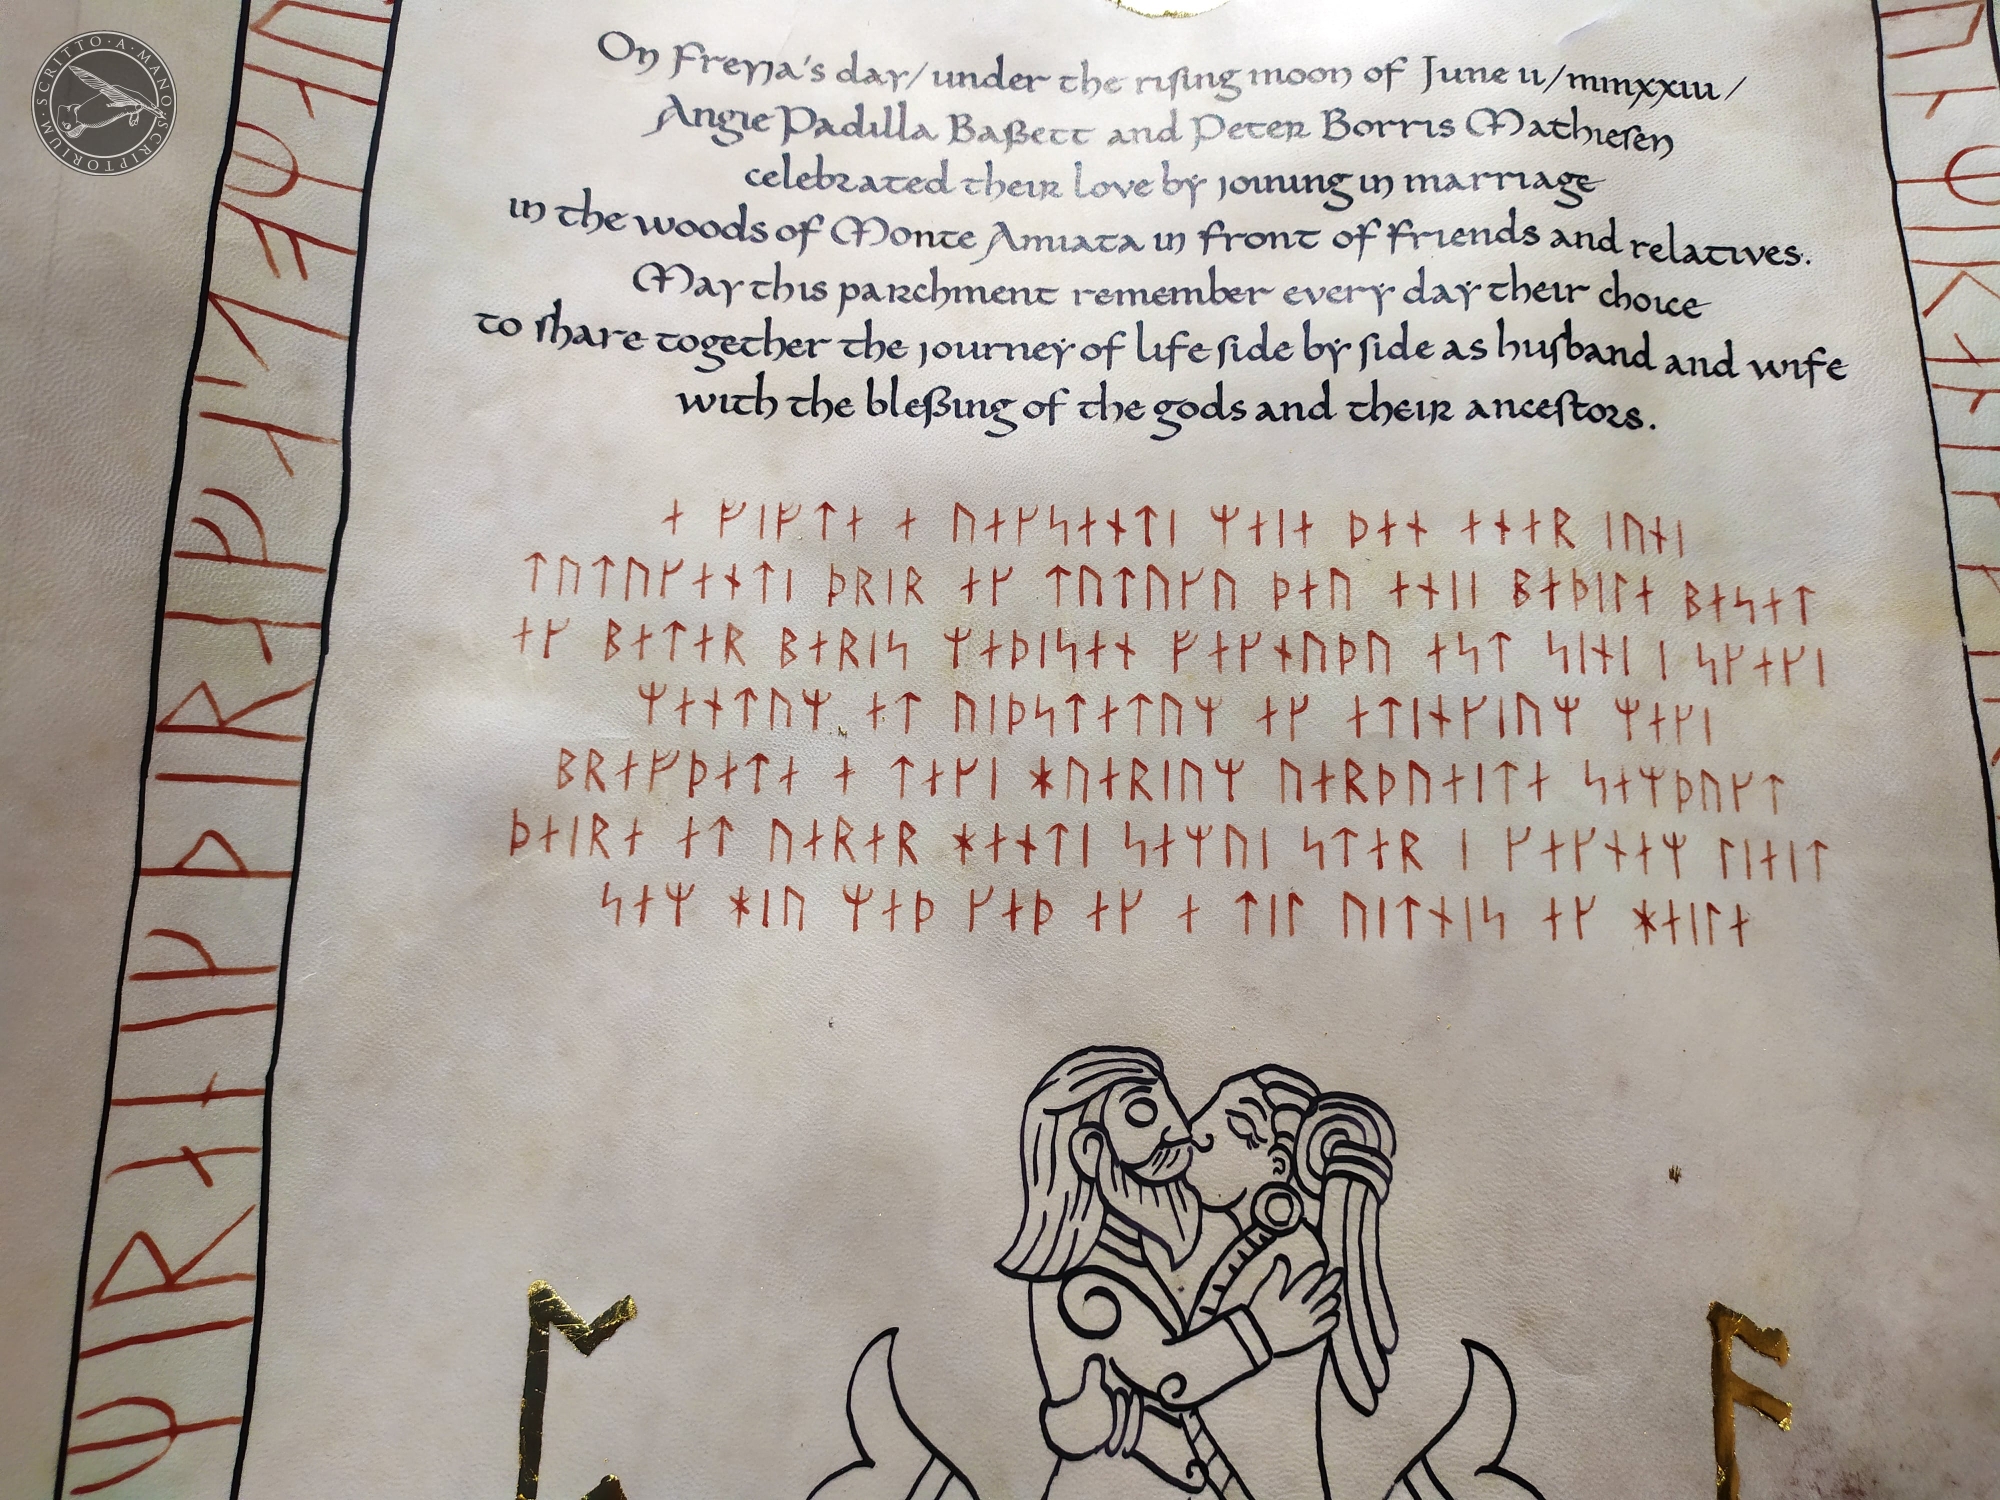 SCRITTO·A·MANO SCRIPTORIUM·M·
On Freyja's day/under the rising moon of June 11/mmxxiii/
Angie Padilla Baßett and Peter Borris Mathiesen
celebrated their love by joining in marriage
in the woods of Monte Amiata in front of friends and relatives.
May this parchment remember every day their choice
to share together the journey of life side by side as husband and wife
with the bleßing of the gods and their ancestors.
ᛅ ᚠᛁᚠᛏᛅ ᛅ ᚢᛅᚴᛋᛅᚾᛏᛁ ᛘᛅᛁᛅ ᚦᛅᚾ ᛅᚾᛅᚱ ᛁᚢᚾᛁ
ᛏᚢᛏᚢᚴᛅᚾᛏᛁ ᚦᚱᛁᚱ ᛅᚴ ᛏᚢᛏᚢᚴᚢ ᚦᛅᚢ ᛅᚾᛁᛁ ᛒᛅᚦᛁᛚᛅ ᛒᛅᛋᛅᛏ
ᛅᚴ ᛒᛅᛏᛅᚱ ᛒᛅᚱᛁᛋ ᛘᛅᚦᛁᛋᛅᚾ ᚠᛅᚴᚾᚢᚦᚢ ᛅᛋᛏ ᛋᛁᚾᛁ ᛁ ᛋᚴᛅᚴᛁ
ᛘᛅᚾᛏᚢᛘ ᛅᛏ ᚢᛁᚦᛋᛏᛅᛏᚢᛘ ᛅᚴ ᛅᛏᛁᚾᚴᛁᚢᛘ ᛘᛅᚴᛁ
ᛒᚱᛅᚠᚦᛅᛏᛅ ᛅ ᛏᛅᚴᛁ ᚼᚢᛅᚱᛁᚢᛘ ᚢᛅᚱᚦᚢᛅᛁᛏᛅ ᛋᛅᛘᚦᚢᚴᛏ
ᚦᛅᛁᚱᛅ ᛅᛏ ᚢᛅᚱᛅᚱ ᚼᛅᚾᛏᛁ ᛋᛅᛘᚢᛁ ᛋᛏᛅᚱ ᛁ ᚴᛅᚴᚾᛅᛘ ᛚᛁᚾᛁᛏ
ᛋᛅᛘ ᚼᛁᚢ ᛘᛅᚦ ᚴᛅᚦ ᛅᚴ ᛅ ᛏᛁᛚ ᚢᛁᛏᚾᛁᛋ ᛅᚴ ᚼᛅᛁᛚᛅ